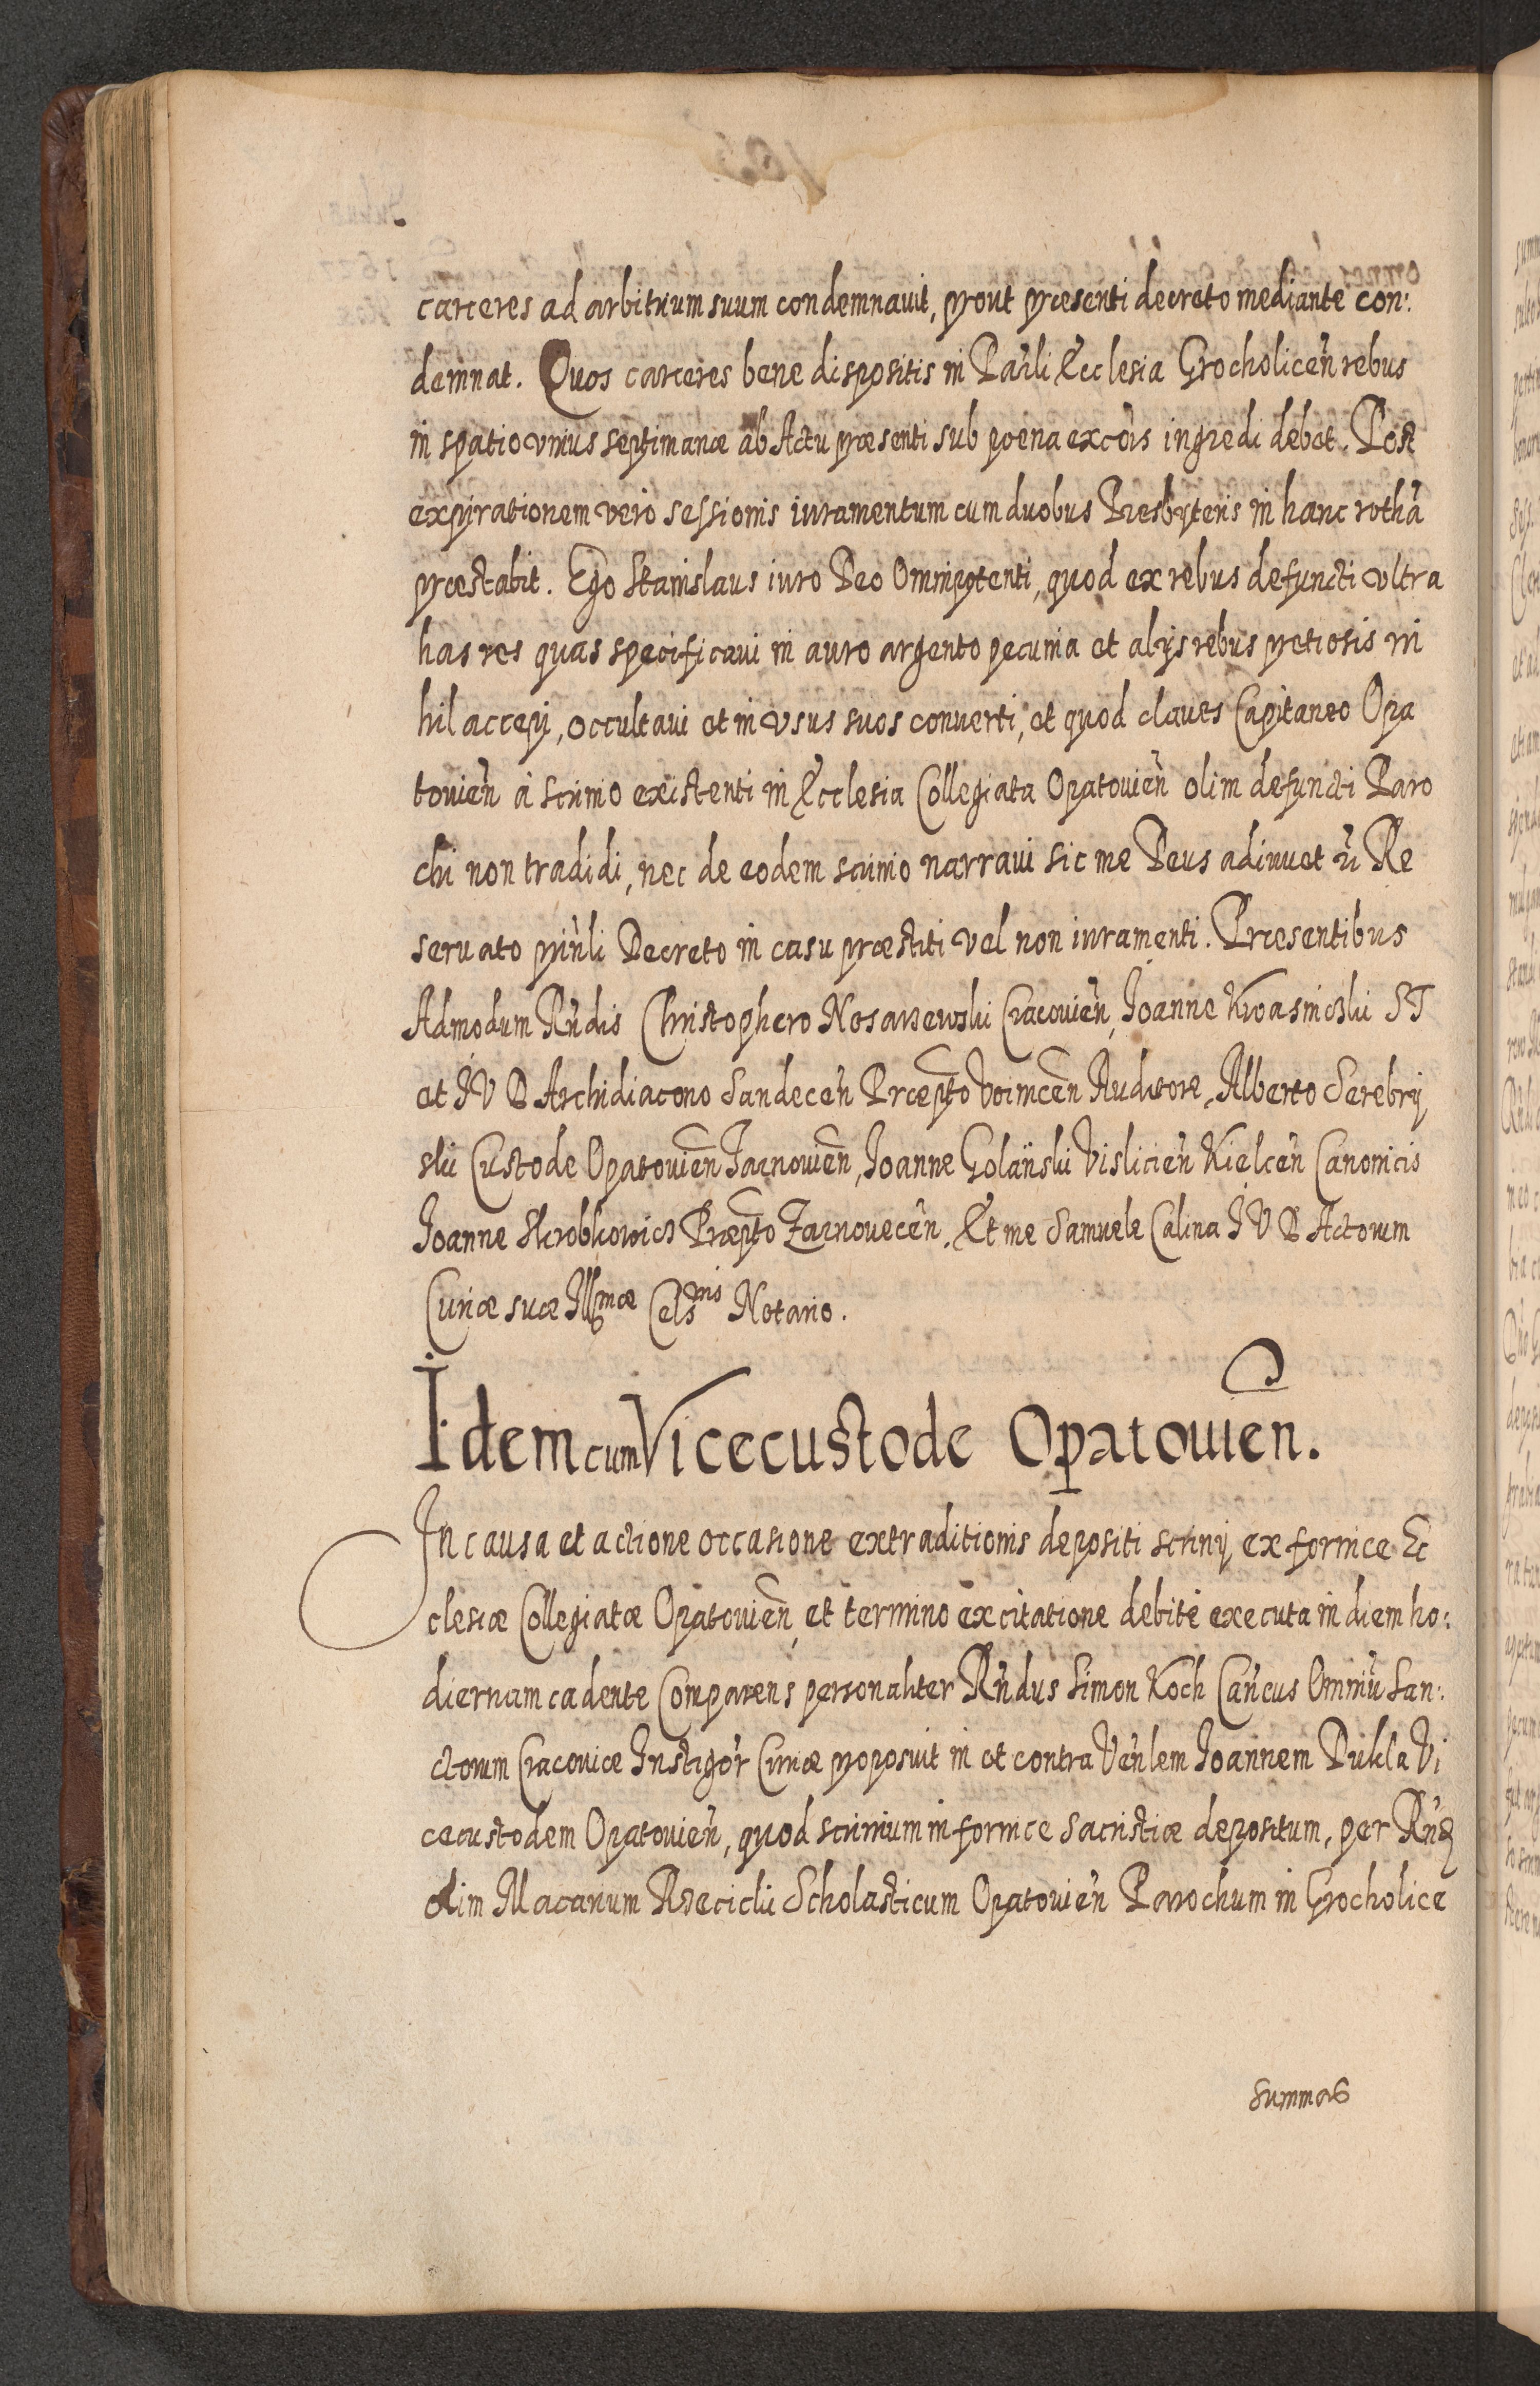 carceres ad arbitrium suum condemnauit, prout præsenti decreto mediante con:
demnat. Quos carceres bene dispositis in Parli Ecclesia Grocholiceñ rebus
in spatio vnius septimanæ ab Actu præsenti sub poena excõis ingredi debet. Post
expirationem vero sessionis iuramentum cum duobus Presbyteris in hanc rothã
præstabit. Ego Stanislaus iuro Deo Omnipotenti, quod ex rebus defuncti vltra
has res quas specificaui in auro argento pecunia et alijs rebus pretiosis ni
hil accepi, occultaui et in vsus suos conuerti, et quod claues Capitaneo Opa
touieñ à scrinio existenti in Ecclesia Collegiata Opatouieñ olim defuncti Paro
chi non tradidi, nec de eodem scrinio narraui sic me Deus adiuuet &c Re
seruato prinli Decreto in casu præstiti vel non iuramenti. Præsentibus
Admodum Rñdis Christophero Nosarzewski Cracouieñ, Joanne Kwasnicki ST
et J V D Archidiacono Sandeceñ Præpto Voiniceñ Auditore, Alberto Serebry
ski Custode Opatouieñ Tarnouieñ, Joanne Golański Vislicieñ Kielceñ Canonicis
Joanne Skrobkowicz Præpto Zarnoueceñ. Et me Samuele Calina J V D Actorum
Curiæ suæ Illmæ Cels^nis Notario.
Idem cum Vicecustode Opatouieñ.
In causa et actione occasione extraditionis depositi scrinij ex fornice Ec
clesiæ Collegiatæ Opatouieñ, et termino ex citatione debitè executa in diem ho:
diernam cadente Comparens personaliter Rñdus Simon Koch Cañcus Omniũ San:
ctorum Cracouiæ Instigor Curiæ proposuit in et contra Veñlem Joannem Dukla Vi
cecustodem Opatouieñ, quod scrinium in fornice Sacristiæ depositum, per Rñd
olim Macarium Rzeciclii Scholasticum Opatouieñ Parochum in Grocholice
Summas